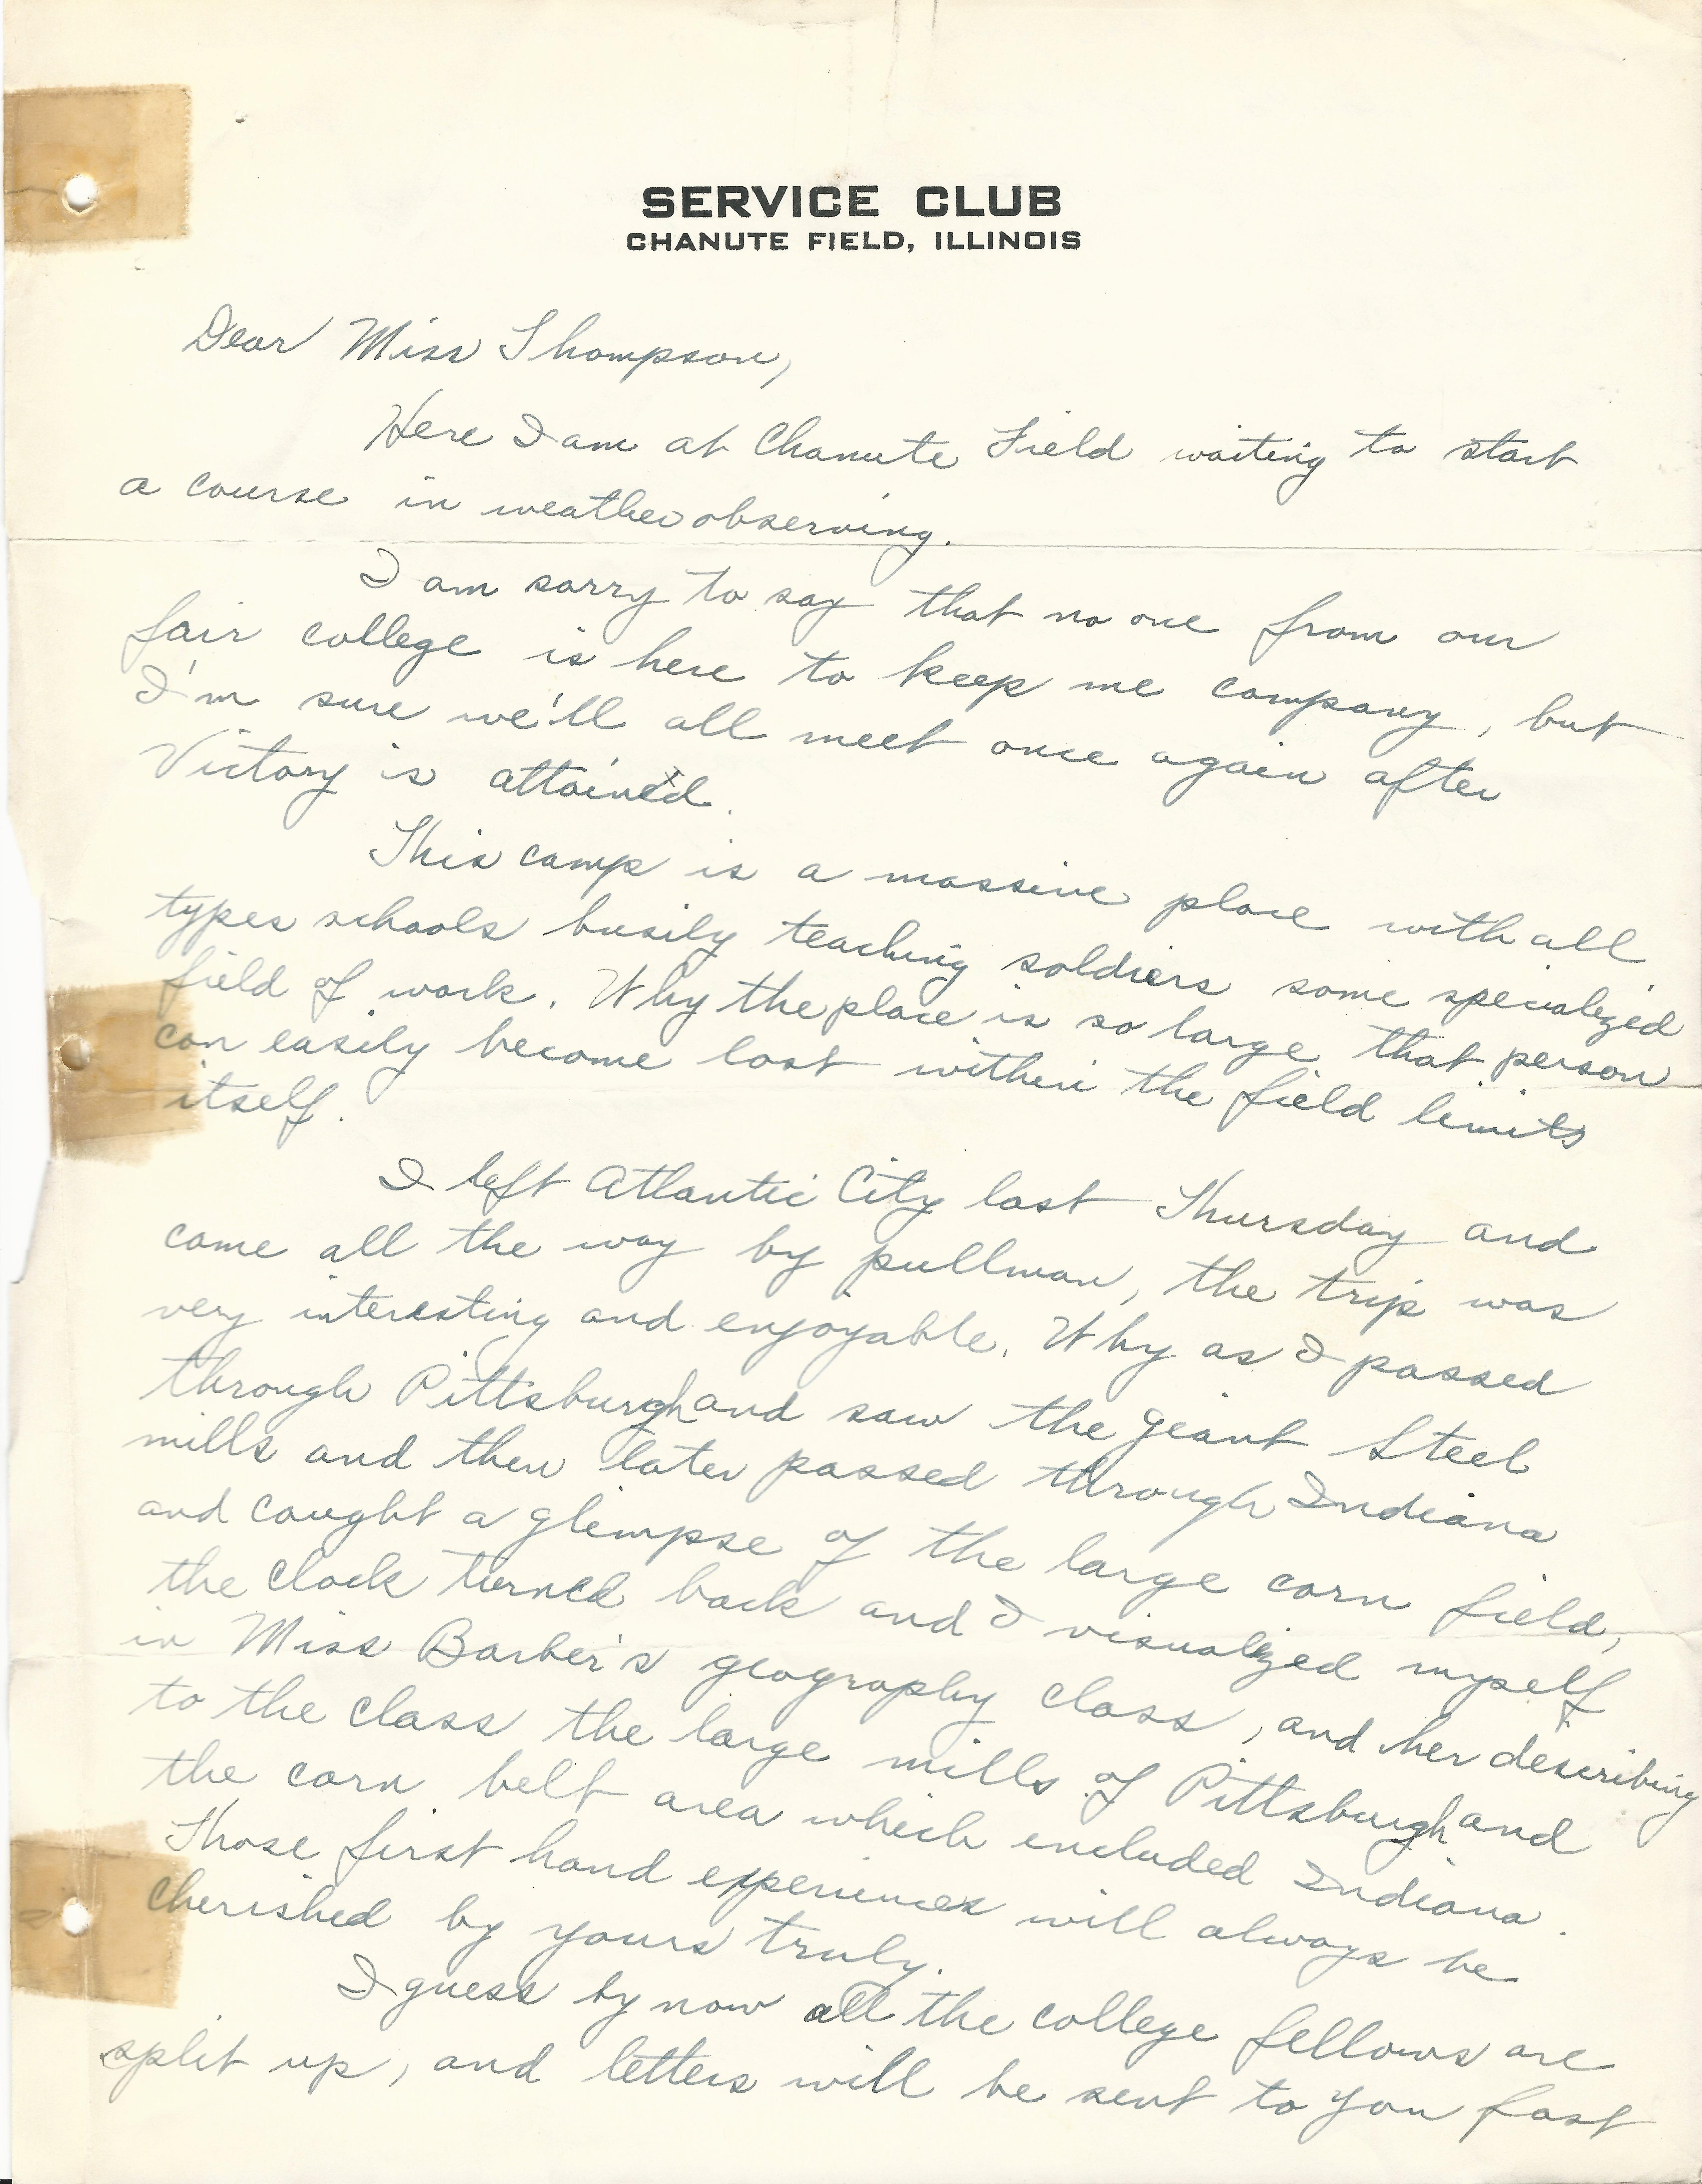 SERVICE CLUB
CHANUTE FIELD, ILLINOIS
Dear Miss Thompson,
Here I am at Chanute Field waiting to start
a course in weather observing.
I am sorry to say that no one from our
fair college is here to keep me company, but
I'm sure we'll all meet once again after
Victory is attained.
This camp is a massive place with all
types schools busily teaching soldiers some specialized
field of work. Why the place is so large that person
can easily become lost within the field limits
itself.
I left Atlantic City last Thursday and
came all the way by pullman, the trip was
very interesting and enjoyable. Why as I passed
through Pittsburgh and saw the giant Steel
mills and then later passed through Indiana
and caught a glimpse of the large corn field,
the clock turned back and I visualized myself
in Miss Barber's geography class, and her describing
to the class the large mills of Pittsburgh and
the corn belt area which included Indiana.
Those first hand experiences will always be
cherished by yours truly.
I guess by now all the college fellows are
split up, and letters will be sent to you fast